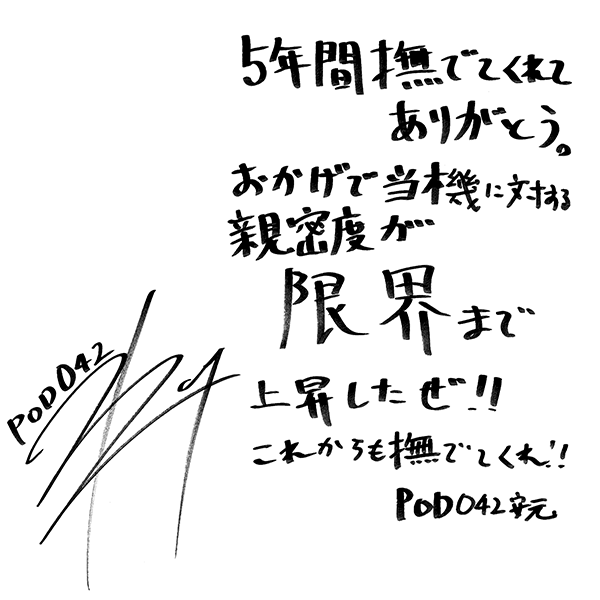 5年間撫でてくれて
ありがとう。
おかげで当機に対する
親密度が
限界まで
上昇したぜ!!
これからも撫でてくれ!!
POD042安元
POD042